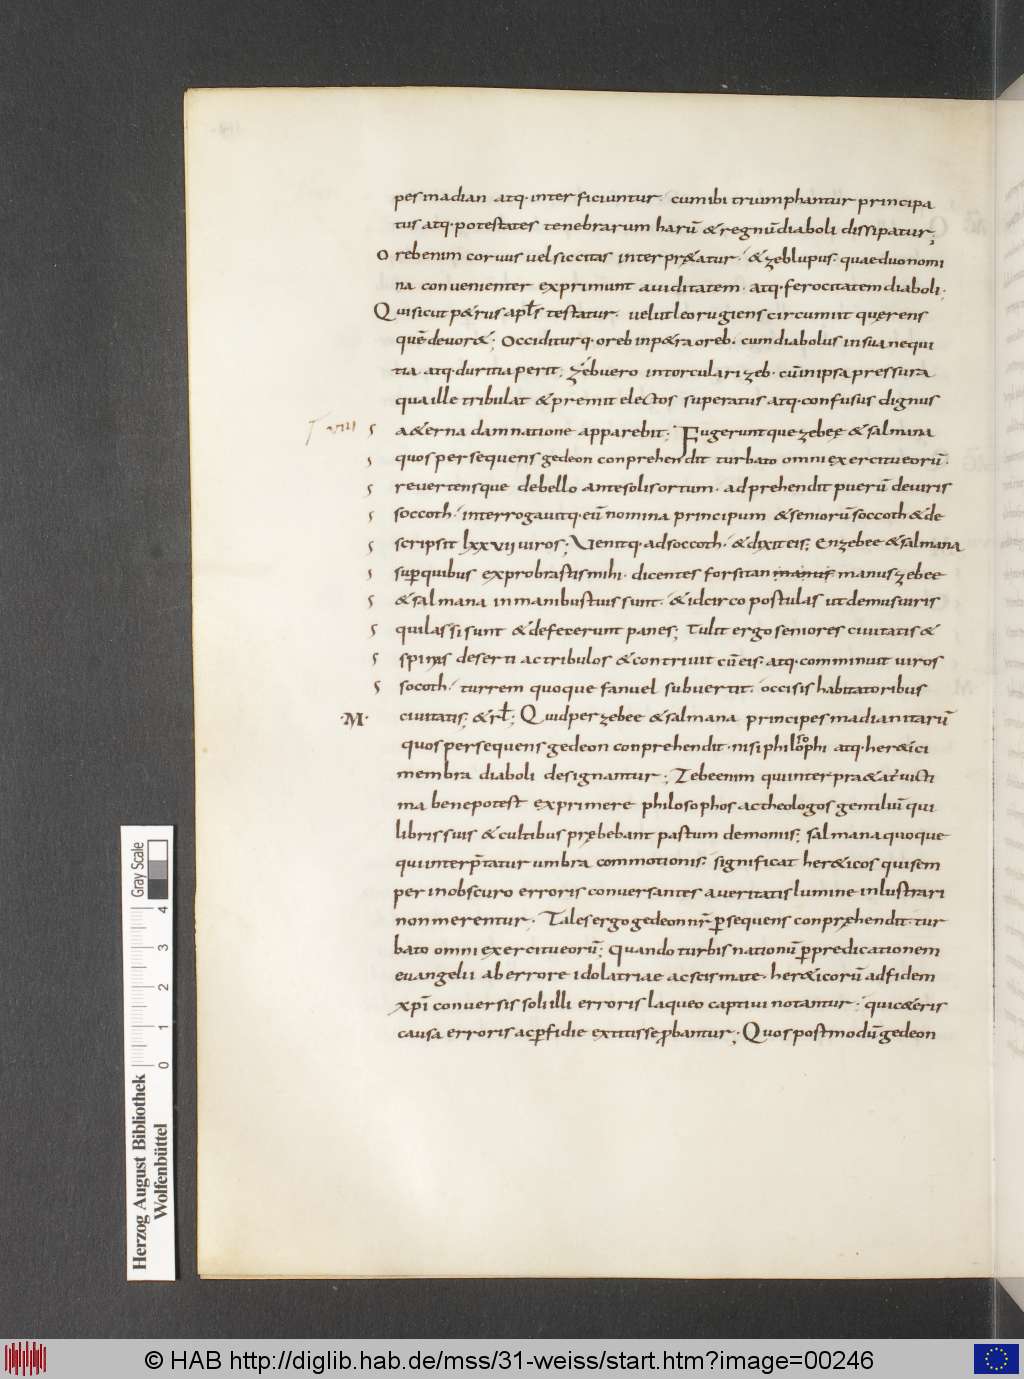 pes madian atq· inter ficiuntur· cum ibi triumphantur principa
tus atq· potestates tenebrarum harū & regnū diaboli dissipatur;
Oreb enim corvus vel siccitas interpr&atur· & zeb lupus· quae duo nomi
na convenienter exprimunt aviditatem· atq· ferocitatem diaboli·
Qui sicut p&rus apłs testatur· velut leo rugiens circumit quęrens
quē devor&; Occiditurq· oreb in p&ra oreb· cum diabolus in sua nequi
tia atq· duritia perit; Zeb vero in torculari zeb· cū in ipsa pressura
qua ille tribulat & premit electos superatus atq· confusus dignus
a&erna damnatione apparebit; Fugeruntque zebeę & salmana
quos persequens gedeon conprehendit turbato omni exercitu eorū·
revertensque de bello ante solis ortum· adprehendit puerū de viris
soccoth· interrogavitq· eū nomina principum & seniorū soccoth & de
scripsit lxxvii viros; Venitq· ad soccoth· & dixit eis; En zebee & salmana
super quibus exprobrastis mihi· dicentes forsitan manus manus zebee
& salmana in manibus tuis sunt· & idcirco postulas ut demus viris
qui lassi sunt & defecerunt panes; Tulit ergo seniores civitatis &
spinas deserti ac tribulos & contrivit cū eis· atq· comminuit viros
socoth· turrem quoque fanuel subvertit· occisis habitatoribus
·M· civitatis; & rł; Quid per zebee & salmana principes madianitarū
quos persequens gedeon conprehendit· nisi philosophi atq· her&ici
membra diaboli designantur; Zebee enim qui interpra&at' victi
ma bene potest exprimere philosophos ac theologos gentiliū qui
libris suis & cultibus prębebant pastum demoniis; salmana quoque
qui interp̄tatur umbra commotionis· significat her&icos qui sem
per in obscuro erroris conversantes a veritatis lumine inlustrari
non merentur· Tales ergo gedeon nr̄ persequens conpręhendit· tur
bato omni exercitu eorū; Quando turbis nationū per predicationem
evangelii ab errore idolatriae ac scismate· her&icorū ad fidem
xpi conversis soli illi erroris laqueo captivi notantur· qui c&eris
causa erroris ac perfidie extitisse probantur; Quos postmodū gedeon
Herzog August Bibliothek
Wolfenbüttel
0 1 2 3 4
Gray Scale
© HAB http://diglib.hab.de/mss/31-weiss/start.htm?image=00246